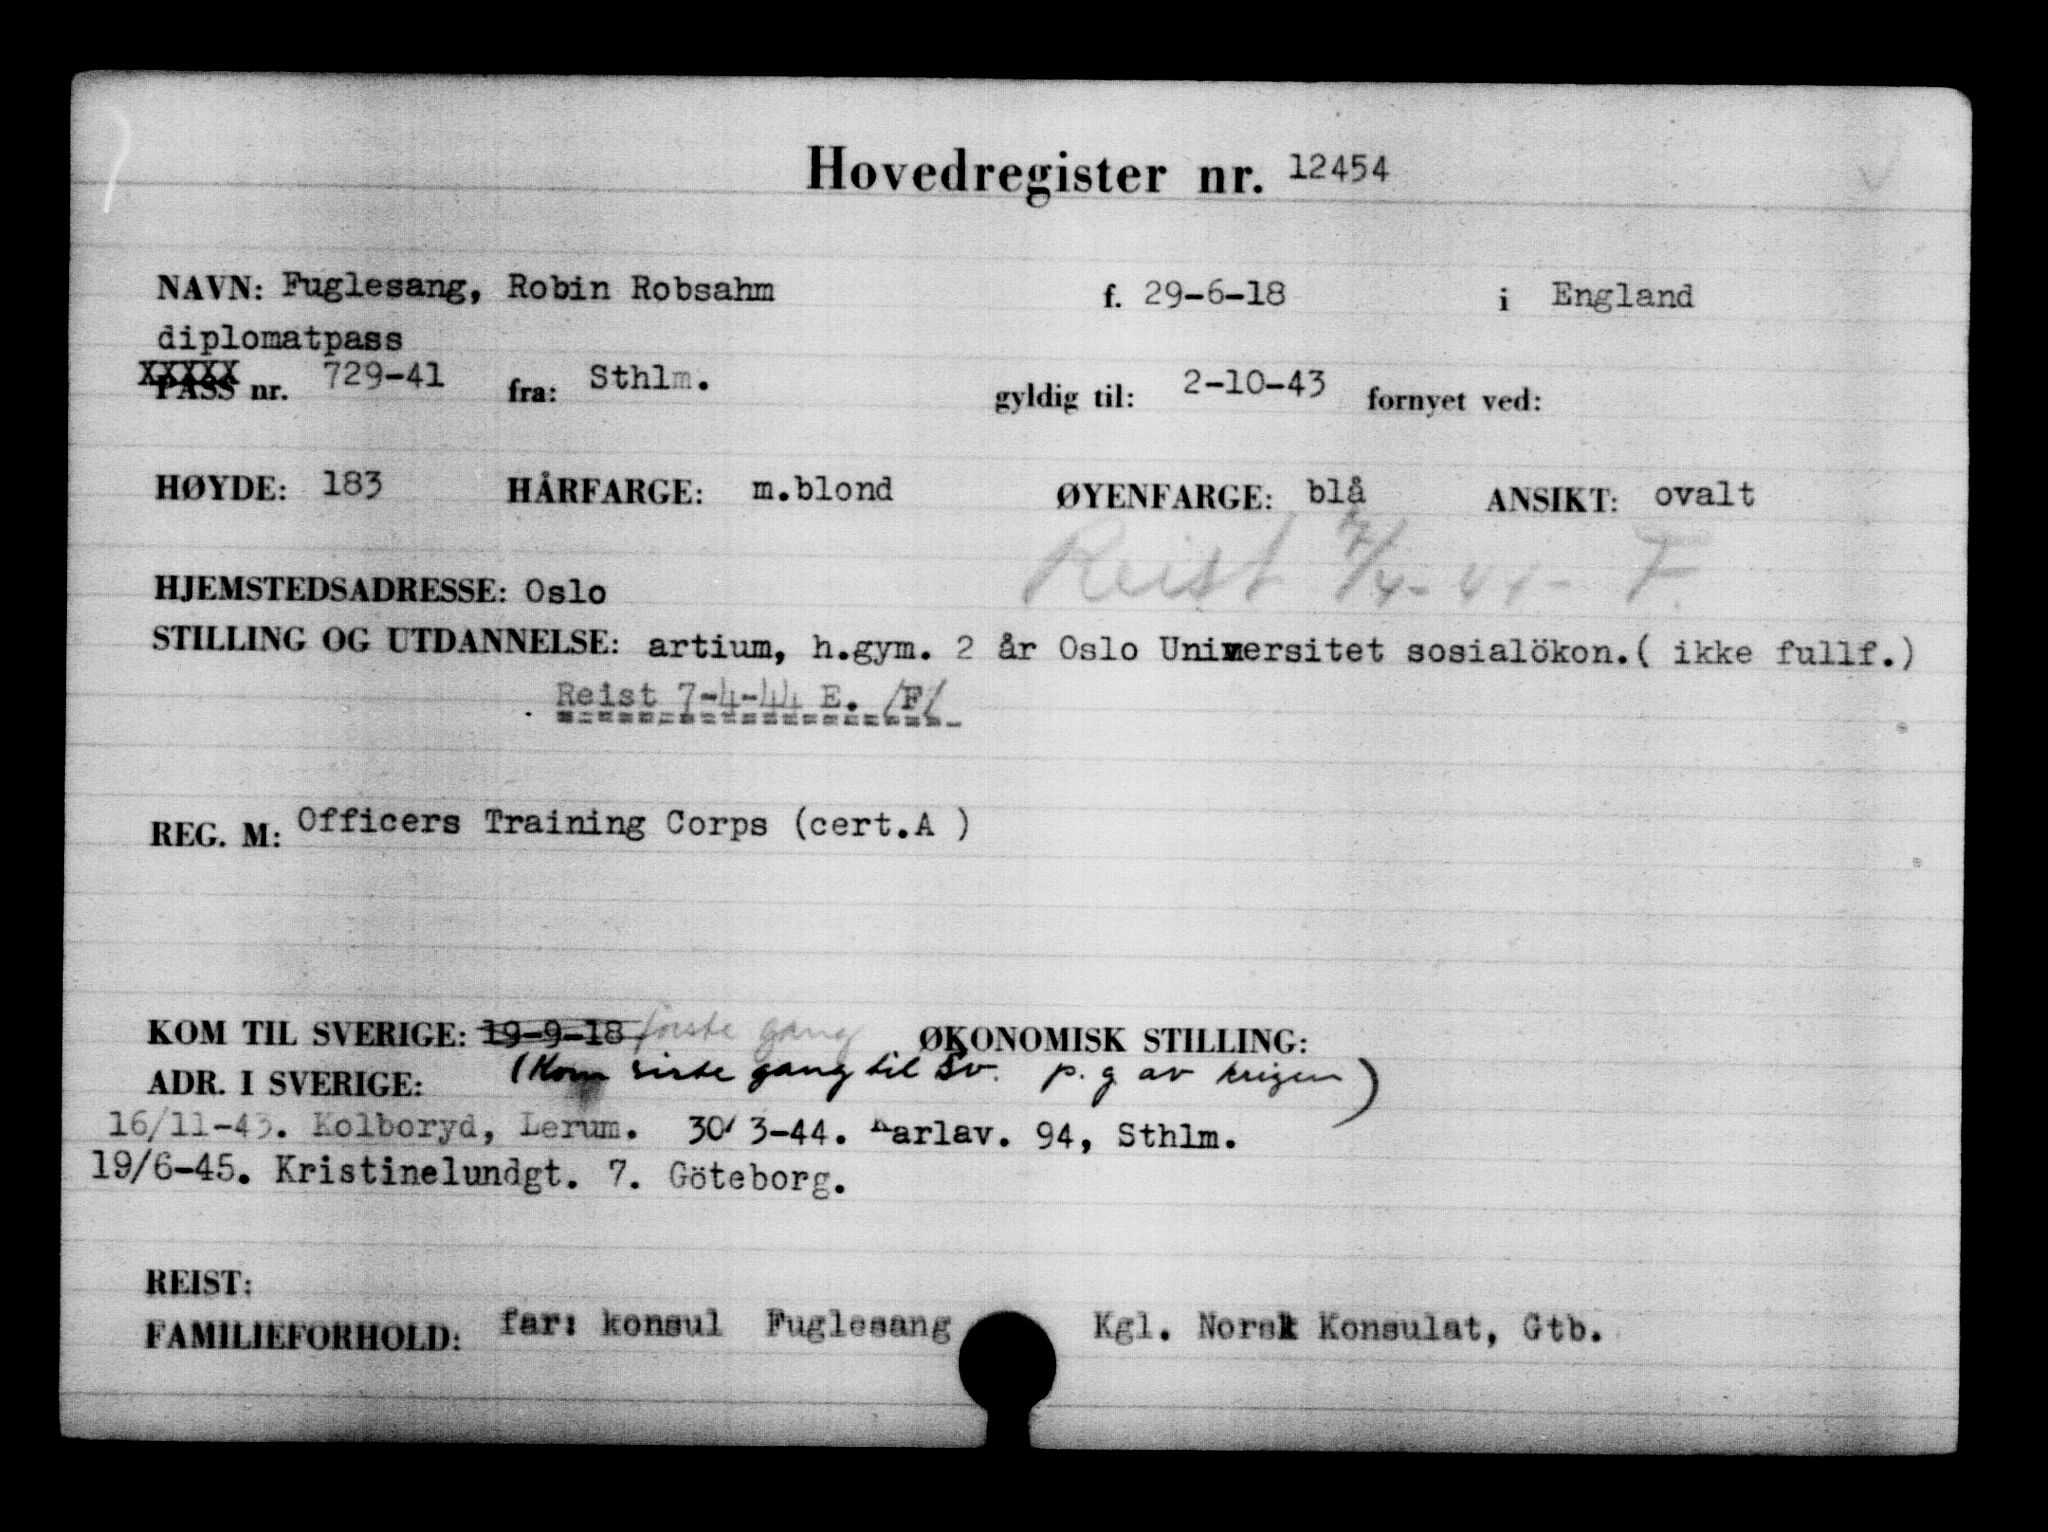 Hovedregister nr. 12454
NAVN: Fuglesang, Robin Robsahm f. 29-6-18 i England
diplomatpass
PASS nr. 729-41 fra: Sthlm. gyldig til: 2-10-43 fornyet ved:
HØYDE: 183 HÅRFARGE: m.blond ØYENFARGE: blå ANSIKT: ovalt
Reist 7/4-44- F.
HJEMSTEDSADRESSE: Oslo
STILLING OG UTDANNELSE: artium, h.gym. 2 år Oslo Universitet sosialökon.( ikke fullf.)
Reist 7-4-44 E. /F/
REG. M: Officers Training Corps (cert.A )
KOM TIL SVERIGE: 19-9-18 første gang ØKONOMISK STILLING:
(Kom siste gang til Sv. p.g av krigen)
ADR. I SVERIGE:
16/11-43. Kolboryd, Lerum. 30/3-44. Karlav. 94, Sthlm.
19/6-45. Kristinelundgt. 7. Göteborg.
REIST:
FAMILIEFORHOLD: far: konsul Fuglesang Kgl. Norsk Konsulat, Gtb.